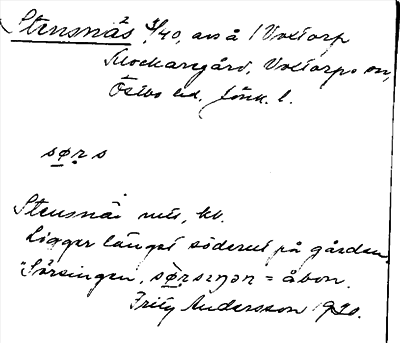 Stensnäs 3/40, avs å 1 Voxtorp
Klockaregård, Voxtorps sn,
Östbo hd, Jönk. l.
sø̱r̥s
Stensnäs nitt, kv.
Ligger längst söderut på gården.
"Sörsingen, sø̱̀r̥sıŋən = åbon.
Fritz Andersson 1920.